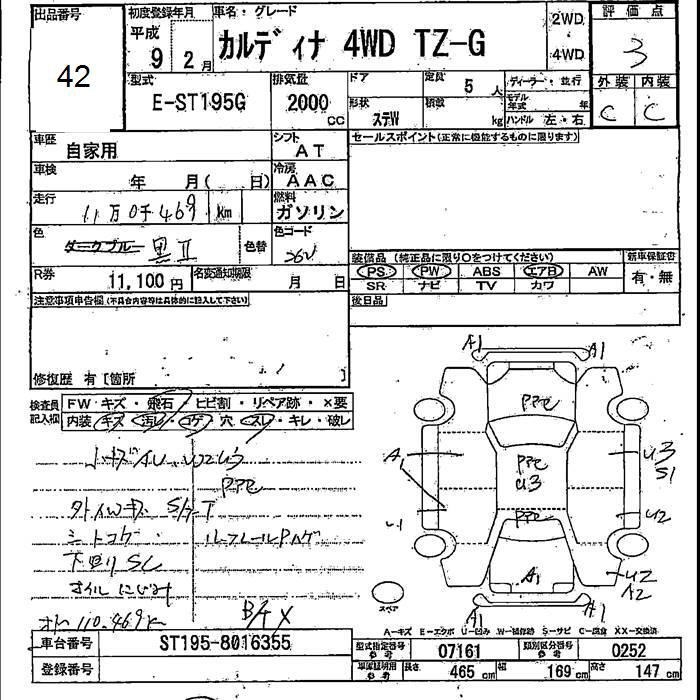 出品番号
42
初度登録年月
平成
9年2月
車名・グレード
カルディナ 4WD TZ-G
2WD
4WD
評価点
3
型式
E-ST195G
排気量
2000cc
ドア
形状
ステW
定員
5人
積数
kg
ディーラー・並行
モデル年式
年
ハンドル 左・右
外装 内装
C C
車歴
自家用
シフト
AT
セールスポイント(正常に機能するものに限ります)
車検
年 月( 日)
冷房
AAC
走行
11万0千469 km
燃料
ガソリン
色
ダークブルー 黒II
色替
色コード
26V
R券
11,100円
名変通知期限
月 日
装備品(純正品に限り○をつけてください)
新車保証書
PS PW ABS エアB AW
有・無
SR ナビ TV カワ
注意事項申告欄(不具合内容等は具体的に記入して下さい)
後日品
修復歴 有[箇所 ]
検査員記入欄
FW キズ・飛石・ヒビ割・リペア跡・×要
内装 キズ・汚レ・コゲ・穴・スレ・キレ・破レ
小キズAU U2U3
PPC
外AWキズ S/F T
シートコゲ ルーフレールPハゲ
下回りSC
オイルにじみ
オドー110.469K
B/T X
A1 A1
PPC
A
PPC
U3
U3
S1
U1
PPC
U2
A1
U2
A2
スペア
A1 A1
A-キズ E-エクボ U-凹み W-補修跡 S-サビ C-腐食 XX-交換済
車台番号
ST195-8016355
型式指定番号
参考
07161
類別区分番号
参考
0252
登録番号
車庫証明用
参考
長さ
465 cm
幅
169 cm
高さ
147 cm